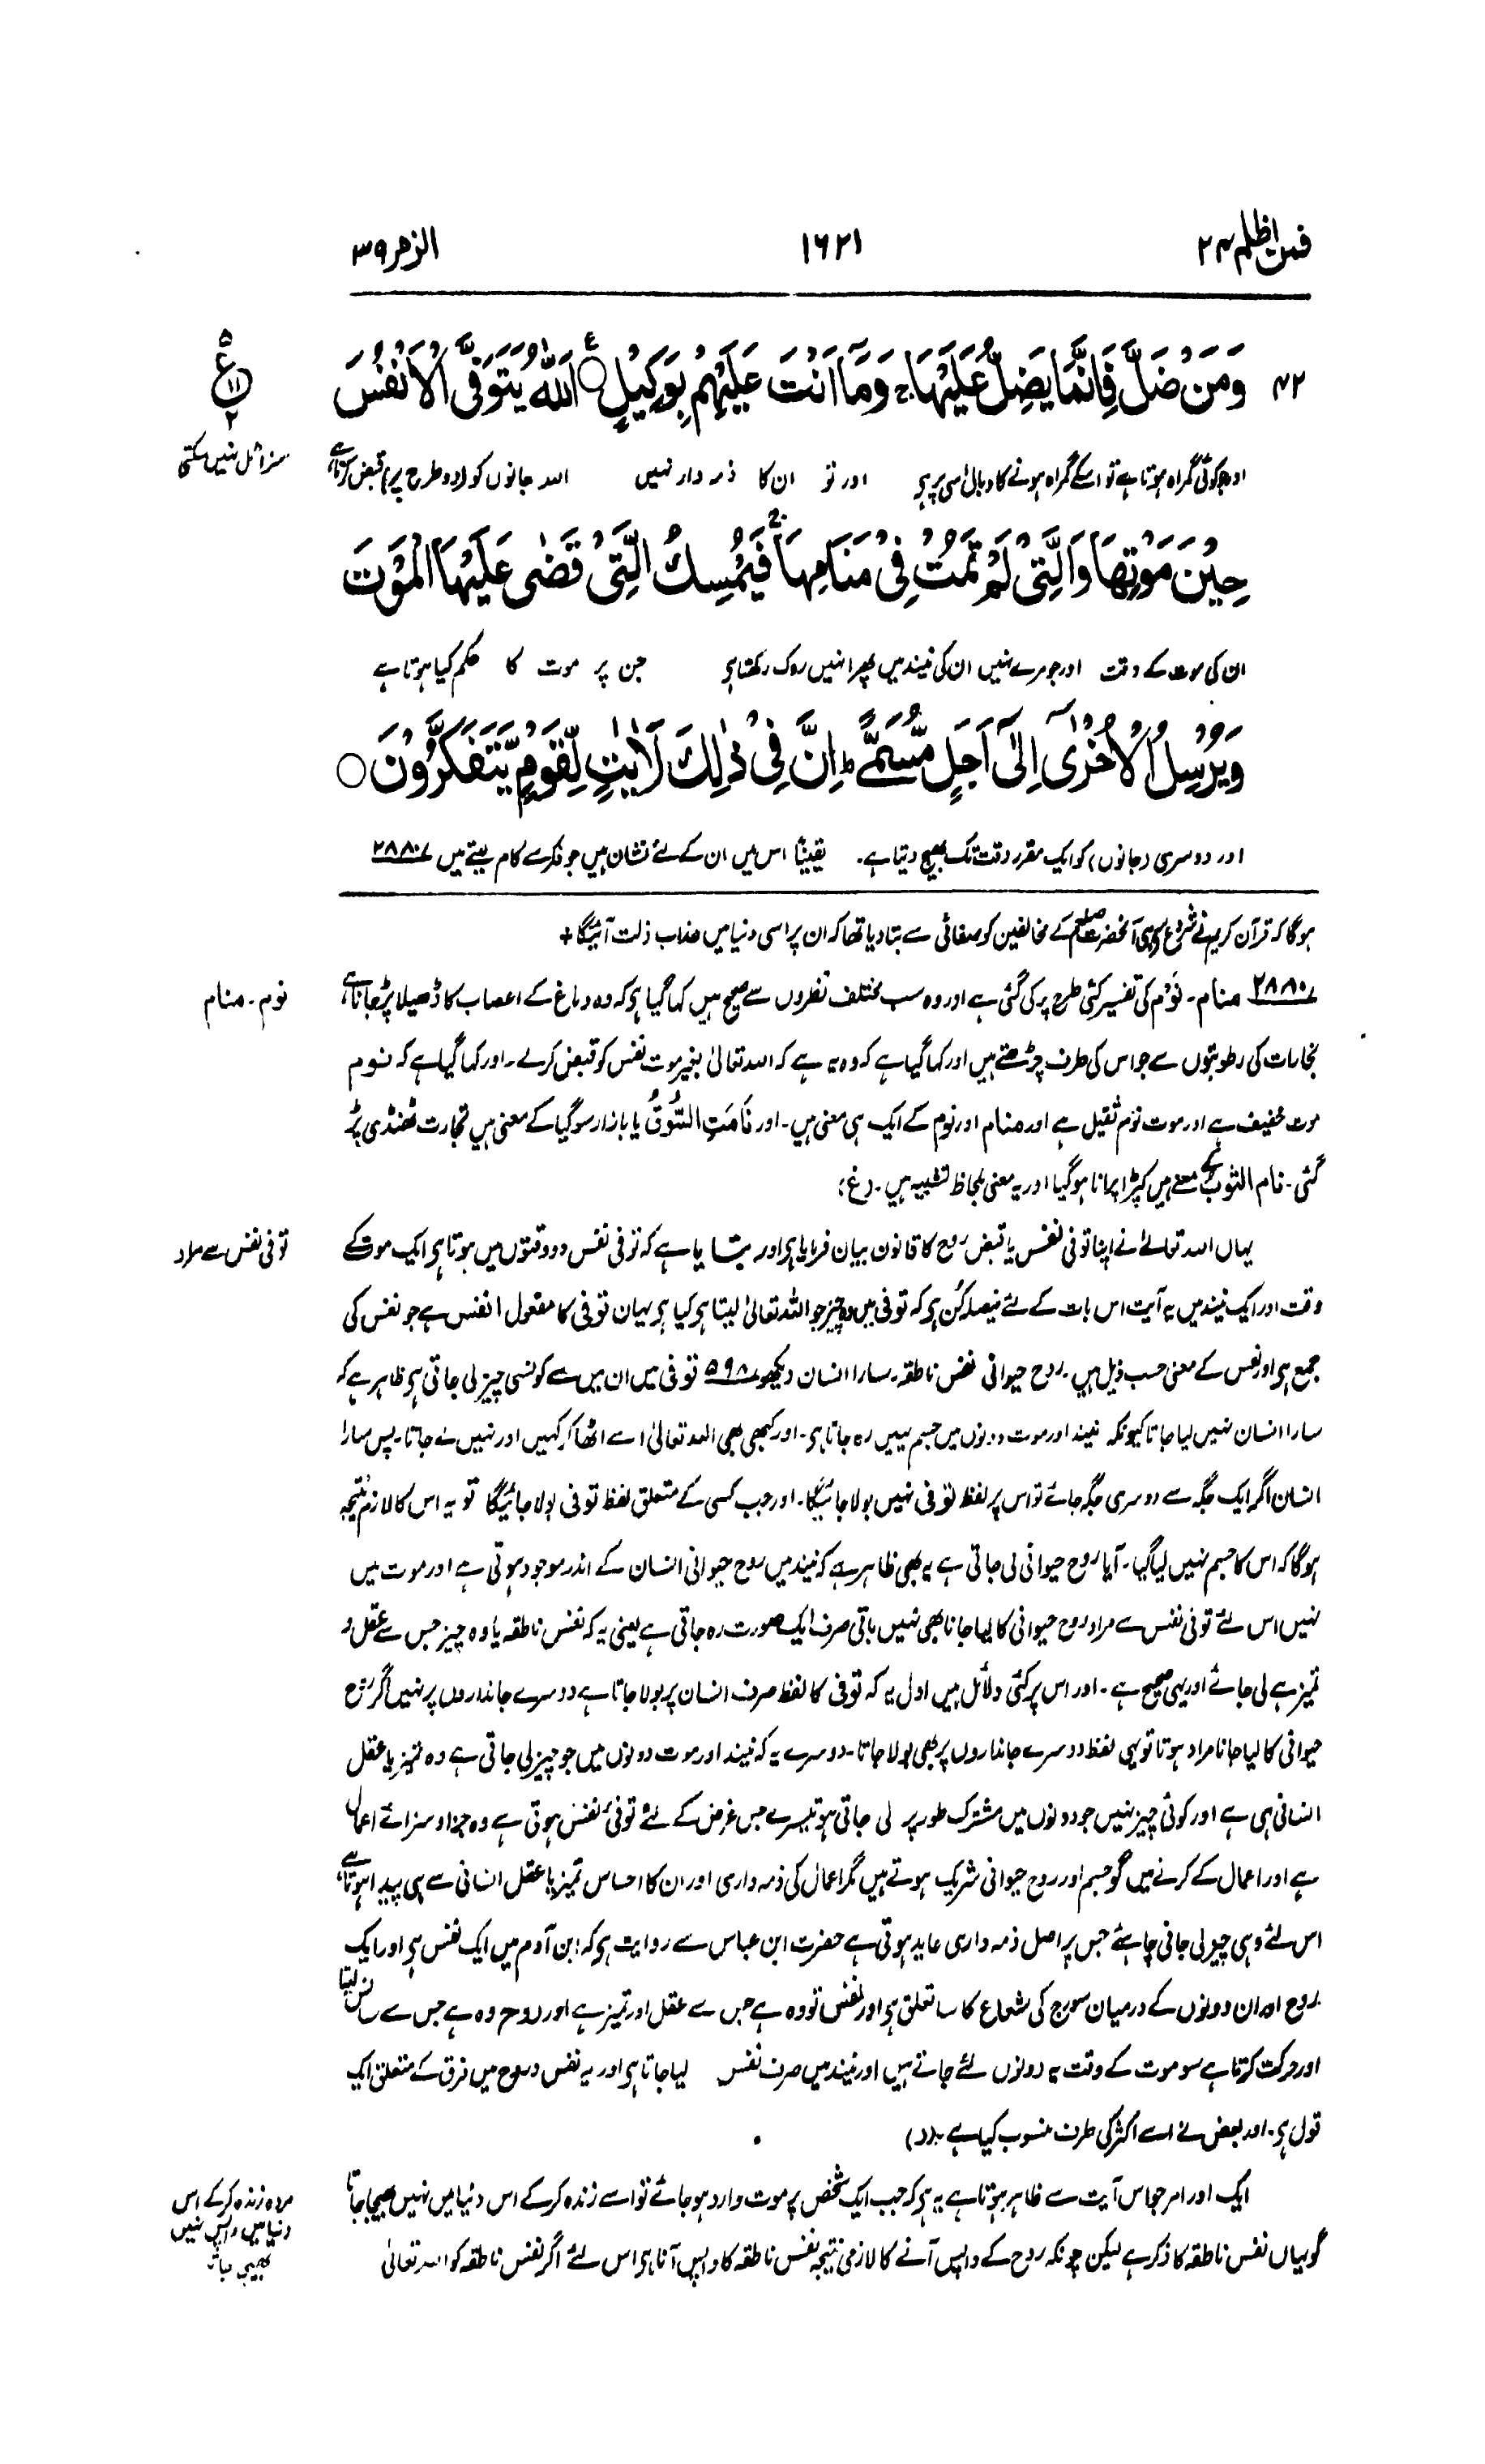 فمن اظلم ۲۴
۱۶۲۱
الزمر ۳۹
وَمَنْ ضَلَّ فَاِنَّمَا یَضِلُّ عَلَیْهَا ۚ وَمَاۤ اَنْتَ عَلَیْهِمْ بِوَكِیْلٍ ۝ اَللّٰهُ یَتَوَفَّى الْاَنْفُسَ
۴۲
ع ۱۱ ۲
سزا ٹل نہیں سکتی
اور جو کوئی گمراہ ہوتا ہے تو اسکے گمراہ ہونے کا وبال اسی پر ہے اور تو ان کا ذمہ دار نہیں اللہ جانوں کو (دو طرح پر) قبض کرتا ہے
حِیْنَ مَوْتِهَا وَالَّتِیْ لَمْ تَمُتْ فِیْ مَنَامِهَا ۚ فَیُمْسِكُ الَّتِیْ قَضٰى عَلَیْهَا الْمَوْتَ
ان کی موت کے وقت اور جو مرے نہیں ان کی نیند میں پھر انہیں روک رکھتا ہی جن پر موت کا حکم کیا ہوتا ہے
وَیُرْسِلُ الْاُخْرٰۤى اِلٰۤى اَجَلٍ مُّسَمًّى ؕ اِنَّ فِیْ ذٰلِكَ لَاٰیٰتٍ لِّقَوْمٍ یَّتَفَكَّرُوْنَ ۝
اور دوسری (جانوں) کو ایک مقرر وقت تک بھیج دیتا ہے۔ یقیناً اس میں ان کے لئے نشان ہیں جو فکر سے کام لیتے ہیں ۲۸۸۰
ہوگا کہ قرآن کریم نے شروع سے ہی آنحضرت صلعم کے مخالفین کو صفائی سے بتا دیا تھا کہ ان پر اسی دنیا میں عذاب ذلت آئیگا +
۲۸۸۰ منام۔ نَوْم کی تفسیر کئی طرح پر کی گئی ہے اور وہ سب مختلف نظروں سے صحیح ہیں کہا گیا ہی کہ وہ دماغ کے اعصاب کا ڈھیلا پڑ جانا ہے
نوم۔ منام
بخارات کی رطوبتوں سے جو اس کی طرف چڑھتے ہیں اور کہا گیا ہے کہ وہ یہ ہے کہ اللہ تعالیٰ بغیر موت نفس کو قبض کرلے۔ اور کہا گیا ہے کہ نوم
موت خفیف ہے اور موت نوم ثقیل ہے اور منام اور نوم کے ایک ہی معنی ہیں۔ اور نَامَتِ السُّوْقُ یا بازار سو گیا کے معنی ہیں تجارت ٹھنڈی پڑ
گئی۔ نام الثوب کے معنے ہیں کپڑا پرانا ہو گیا اور یہ معنی بلحاظ تشبیہ ہیں۔ (غ)
یہاں اللہ تعالےٰ نے اپنا توفی نفس یا قبض روح کا قانون بیان فرمایا ہی اور بتایا ہے کہ توفی نفس دو وقتوں میں ہوتا ہی ایک موت کے
توفی نفس سے مراد
وقت اور ایک نیند میں یہ آیت اس بات کے لئے فیصلہ کُن ہی کہ توفی میں وہ چیز جو اللہ تعالیٰ لیتا ہی کیا ہی یہاں توفی کا مفعول انفس ہے جو نفس کی
جمع ہی اور نفس کے معنی حسب ذیل ہیں۔ روح حیوانی نفس ناطقہ۔ سارا انسان دیکھو ۵۹۸ توفی میں ان میں سے کونسی چیز لی جاتی ہی ظاہر ہے کہ
سارا انسان نہیں لیا جاتا کیونکہ نیند اور موت دونوں میں جسم یہیں رہ جاتا ہی۔ اور کبھی بھی اللہ تعالیٰ اسے اٹھا کر کہیں اور نہیں لے جاتا۔ پس سارا
انسان اگر ایک جگہ سے دوسری جگہ جائے تو اس پر لفظ توفی نہیں بولا جائیگا۔ اور جب کسی کے متعلق لفظ توفی بولا جائیگا تو یہ اس کا لازم نتیجہ
ہوگا کہ اس کا جسم نہیں لیا گیا۔ آیا روح حیوانی لی جاتی ہے یہ بھی ظاہر ہے کہ نیند میں روح حیوانی انسان کے اندر موجود ہوتی ہے اور موت میں
نہیں اس لئے توفی نفس سے مراد روح حیوانی کا لیا جانا بھی نہیں باقی صرف ایک صورت رہ جاتی ہے یعنی یہ کہ نفس ناطقہ یا وہ چیز جس سے عقل و
تمیز ہے لی جائے اور یہی صحیح ہے۔ اور اس پر کئی دلائل ہیں اول یہ کہ توفی کا لفظ صرف انسان پر بولا جاتا ہے دوسرے جانداروں پر نہیں اگر روح
حیوانی کا لیا جانا مراد ہوتا تو یہی لفظ دوسرے جانداروں پر بھی بولا جاتا۔ دوسرے یہ کہ نیند اور موت دونوں میں جو چیز لی جاتی ہے وہ تمیز یا عقل
انسانی ہی ہے اور کوئی چیز نہیں جو دونوں میں مشترک طور پر لی جاتی ہو تیسرے جس غرض کے لئے توفی نفس ہوتی ہے وہ جزا و سزائے اعمال
ہے اور اعمال کے کرنے میں گو جسم اور روح حیوانی شریک ہوتے ہیں مگر اعمال کی ذمہ داری اور ان کا احساس تمیز یا عقل انسانی سے ہی پیدا ہوتا ہے
اس لئے وہی چیز لی جانی چاہئے جس پر اصل ذمہ داری عاید ہوتی ہے حضرت ابن عباس سے روایت ہی کہ ابن آدم میں ایک نفس ہی اور ایک
روح اور ان دونوں کے درمیان سورج کی شعاع کا سا تعلق ہی اور نفس تو وہ ہے جس سے عقل اور تمیز ہے اور روح وہ ہے جس سے سانس لیتا
اور حرکت کرتا ہے سو موت کے وقت یہ دونوں لئے جاتے ہیں اور نیند میں صرف نفس لیا جاتا ہی اور یہ نفس و روح میں فرق کے متعلق ایک
قول ہی۔ اور بعض نے اسے اکثر کی طرف منسوب کیا ہے (ر)
ایک اور امر جو اس آیت سے ظاہر ہوتا ہے یہ ہی کہ جب ایک شخص پر موت وارد ہو جائے تو اسے زندہ کر کے اس دنیا میں نہیں بھیجا جاتا
مردہ زندہ کر کے اس
دنیا میں واپس نہیں
بھیجا جاتا
گو یہاں نفس ناطقہ کا ذکر ہے لیکن چونکہ روح کے واپس آنے کا لازمی نتیجہ نفس ناطقہ کا واپس آنا ہی اس لئے اگر نفس ناطقہ کو اللہ تعالیٰ